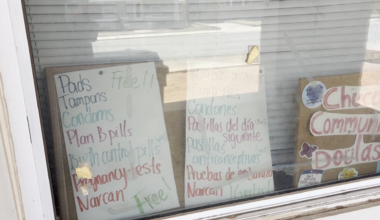 Pads Free!!
Tampons
Condoms
Plan B pills
Birth control pills
Pregnancy tests
Narcan
Free!
Condones
Pastillas del día
siguiente
pastillas
anticonceptivas
Pruebas de
Narcan
Community
Doulas